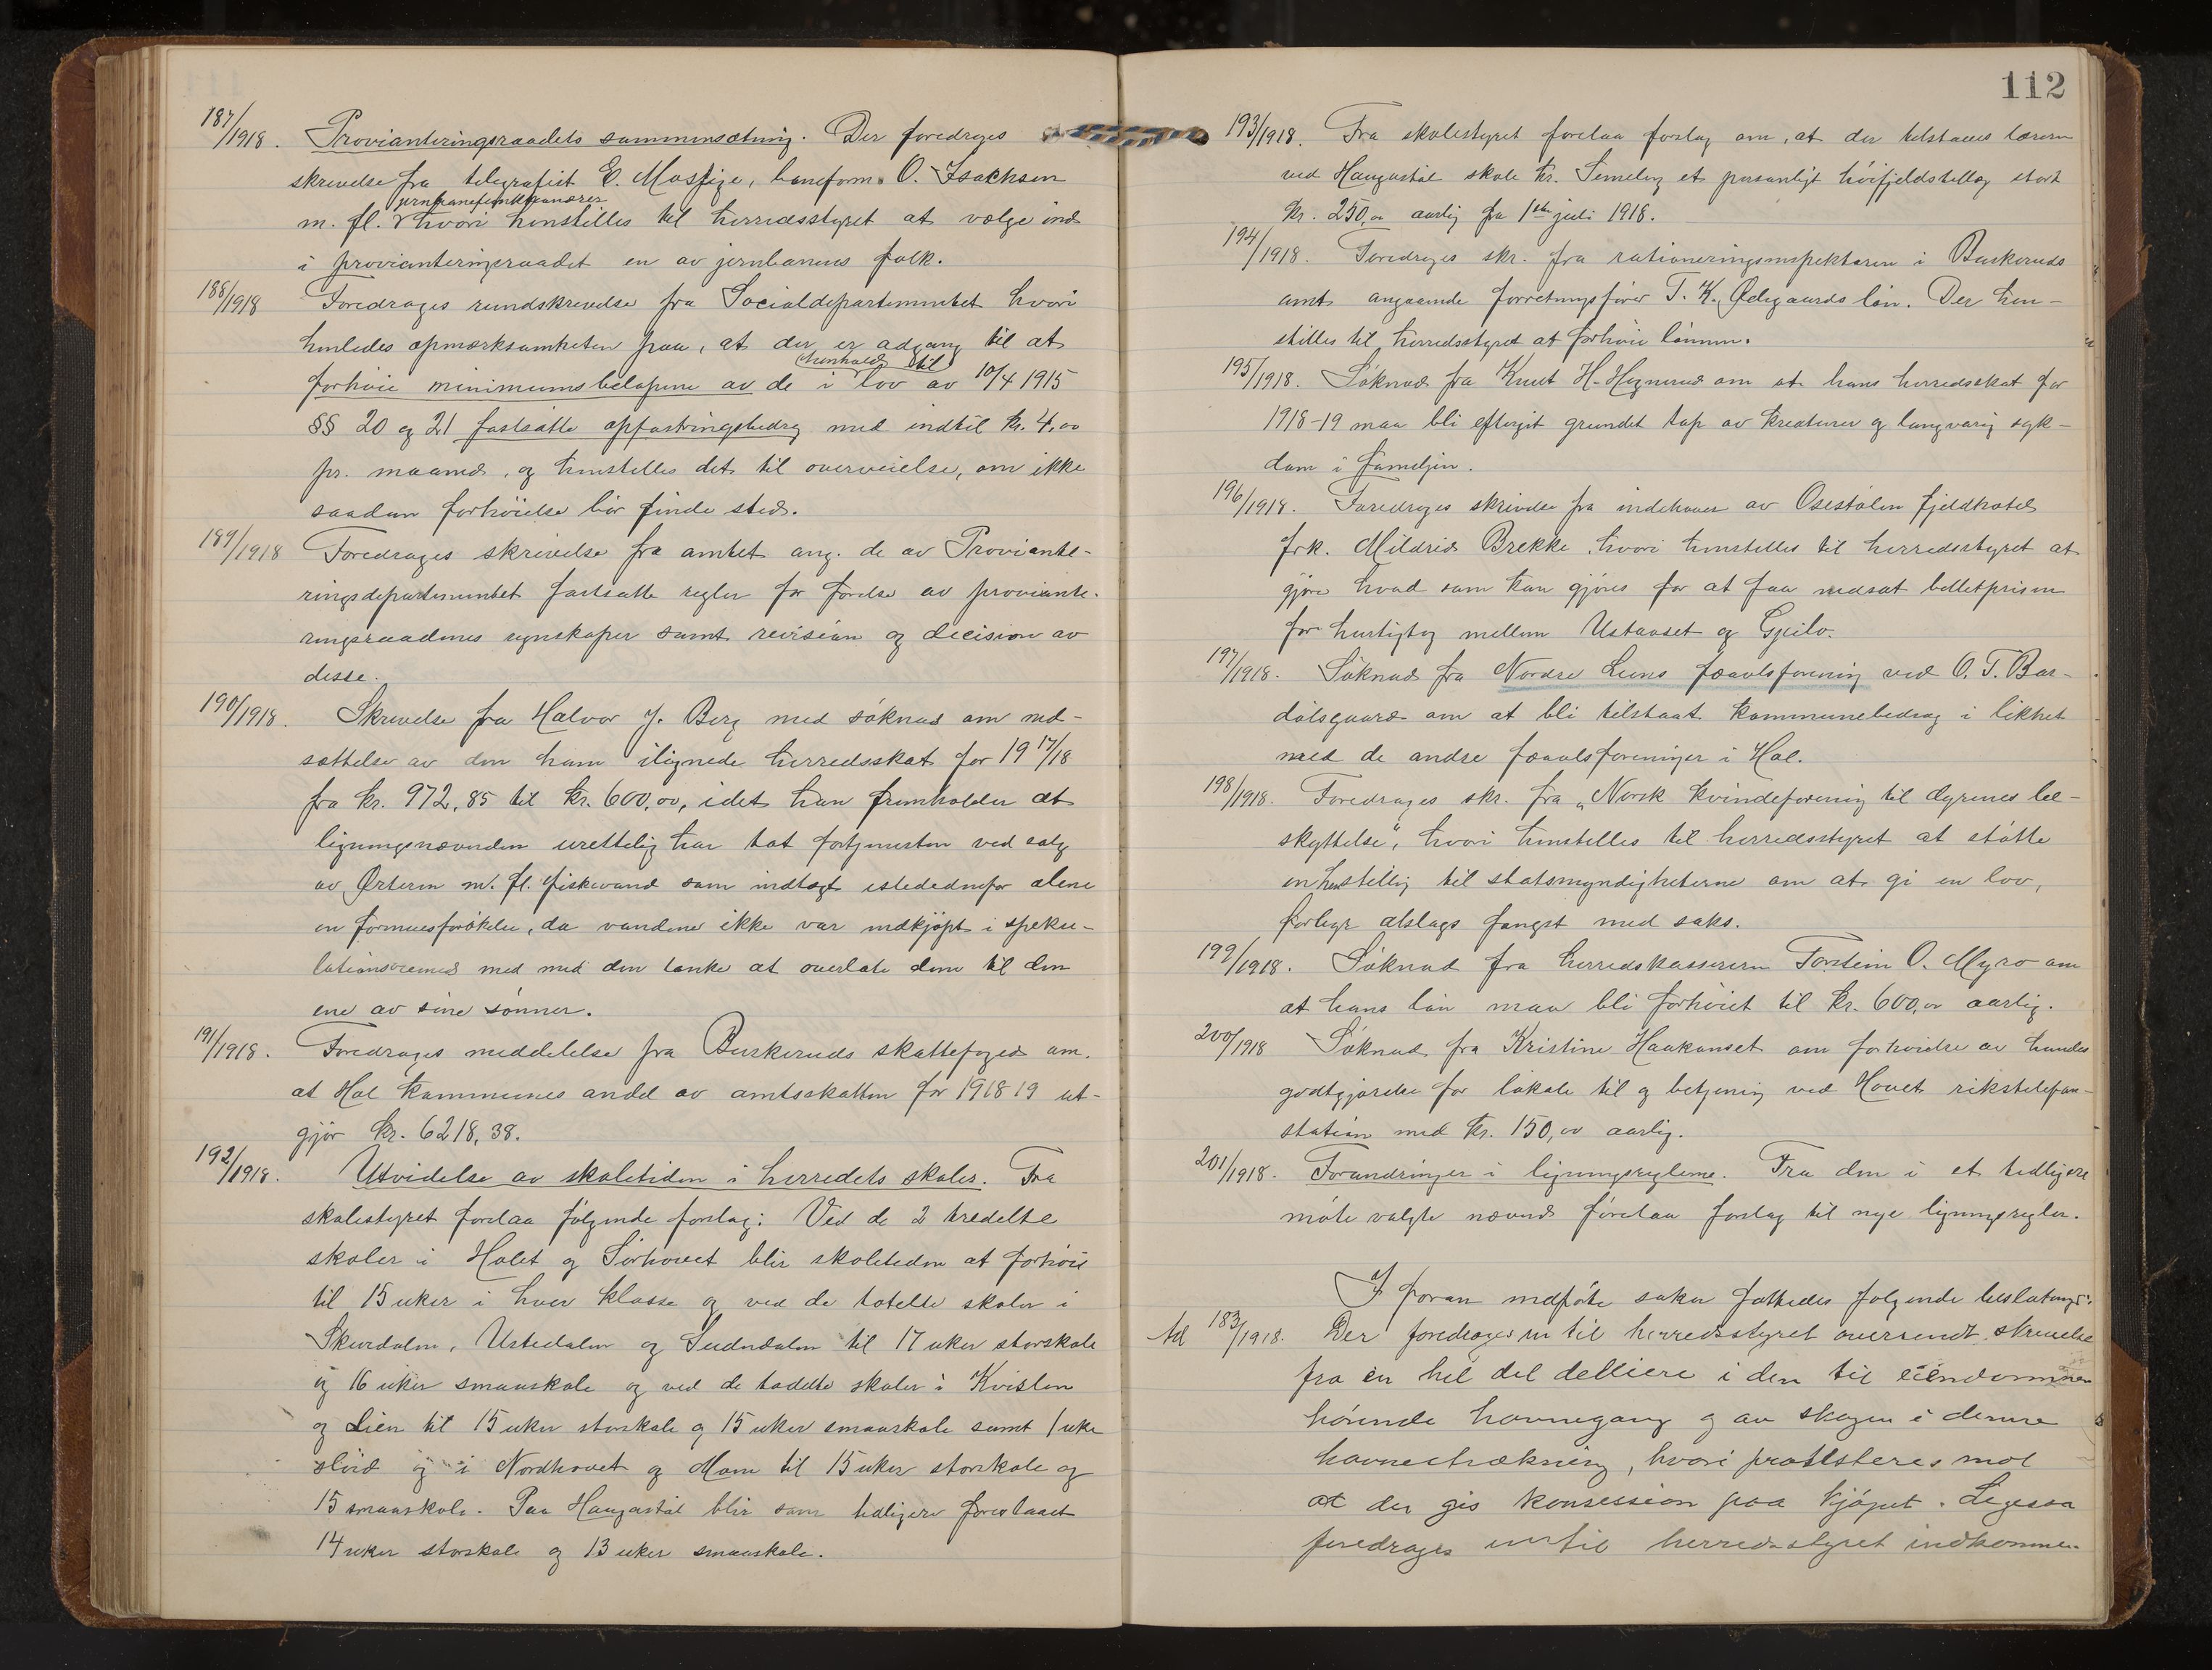 187/1918. Provianteringsraadets sammensætning. Der foredroges
skrivelse fra telegrafist E. Mosfige, baneform. O. Isachsen
jernbanefunktionærer
m. fl. hvori henstilles til herredsstyret at vælge ind
i provianteringsraadet en av jernbanens folk.
188/1918 Foredroges rundskrivelse fra Socialdepartementet hvori
henledes opmerksomheten paa, at der er adgang til at
henhold til
forhøie minimumsbeløpene av de i lov av 10/4 1915
§§ 20 og 21 fastsatte opfostringsbidrag med indtil kr. 4,00
pr. maaned, og henstilles det til overveielse, om ikke
saadan forhøielse bør finde sted.
189/1918 Foredroges skrivelse fra amtet ang. de av Proviante-
ringsdepartementet fastsatte regler for førelse av proviante-
ringsraadenes regnskaper samt revision og decision av
disse.
190/1918. Skrivelse fra Halvor J. Berg med søknad om ned-
sættelse av den ham ilignede herredsskat for 1917/18
fra kr. 972,85 til kr. 600,00, idet han fremholder at
ligningsnævnden urettelig har tat fortjenesten ved salg
av Ørteren m. fl. fiskevand som indtægt istedenfor alene
en formuesforøkelse, da vandene ikke var indkjøpt i speku-
lationsøiemed med med den tanke at overlate dem til den
ene av sine sønner.
191/1918. Foredroges meddelelse fra Buskeruds skattefoged om.
at Hol kommunes andel av amtsskatten for 1918 19 ut-
gjør kr. 6218,38.
192/1918. Utvidelse av skoletiden i herredets skoler. Fra
skolestyret forelaa følgende forslag: Ved de 2 tredelte
skoler i Holet og Sørhovet blir skoletiden at forhøie
til 15 uker i hver klasse og ved de todelte skoler i
Skurdalen, Ustedalen og Sudndalen til 17 uker storskole
og 16 uker smaaskole og ved de todelte skoler i Kvislen
og Lien til 15 uker storskole og 15 uker smaaskole samt 1 uke
sløid og i Nordhovet og Moen til 15 uker storskole og
15 smaaskole. Paa Haugastøl blir som tidligere foreslaaet
14 uker storskole og 13 uker smaaskole.
112
193/1918. Fra skolestyret forelaa forslag om, at der tilstaaes læreren
ved Haugastøl skole Kr. Semeleng et personligt høifjeldstillæg stort
kr. 250,00 aarlig fra 1ste juli 1918.
194/1918. Foredroges skr. fra rationeringsinspektøren i Buskeruds
amt angaaende forretningsfører T. K. Ødegaards løn. Der hen-
stilles til herredsstyret at forhøie lønnen.
195/1918. Søknad fra Knut H. Hognerud om at hans herredsskat for
1918-19 maa bli eftergit grundet tap av kreaturer og langvarig syk-
dom i familjen.
196/1918. Foredroges skrivelse fra indehaver av Osestølen fjeldhotel
frk. Mildrid Brekke, hvori henstilles til herredsstyret at
gjøre hvad som kan gjøres for at faa nedsat billetprisen
for hurtigtog mellem Ustaoset og Gjeilo.
197/1918. Søknad fra Nordre Liens fæavlsforening ved O. T. Bar-
dølsgaard om at bli tilstaat kommunebidrag i likhet
med de andre fæavlsforeninger i Hol.
198/1918. Foredroges skr. fra "Norsk kvindeforening til dyrenes be-
skyttelse", hvori henstilles til herredsstyret at støtte
en henstilling til statsmyndigheterne om at gi en lov,
forbyr alslags fangst med saks.
199/1918. Søknad fra herredskassereren Torstein O. Myro om
at hans løn maa bli forhøiet til kr. 600,00 aarlig.
200/1918 Søknad fra Kristine Haakonset om forhøielse av hendes
godtgjørelse for lokale til og betjening ved Hovet rikstelefon-
station med kr. 150,00 aarlig.
201/1918. Forandringer i ligningsreglerne. Fra den i et tidligere
møte valgte nævnd forelaa forslag til nye ligningsregler.
I foran indførte saker fattedes følgende beslutninger:
Ad 183/1918. Der foredroges en til herredsstyret oversendt skrivelse
fra en hel del deleiere i den til eiendommen
hørende havnegang og av skogen i denne
havnestrækning, hvori protesteres mot
at der gis konsession paa kjøpet. Ligesaa
foredroges en til herredsstyret indkommen